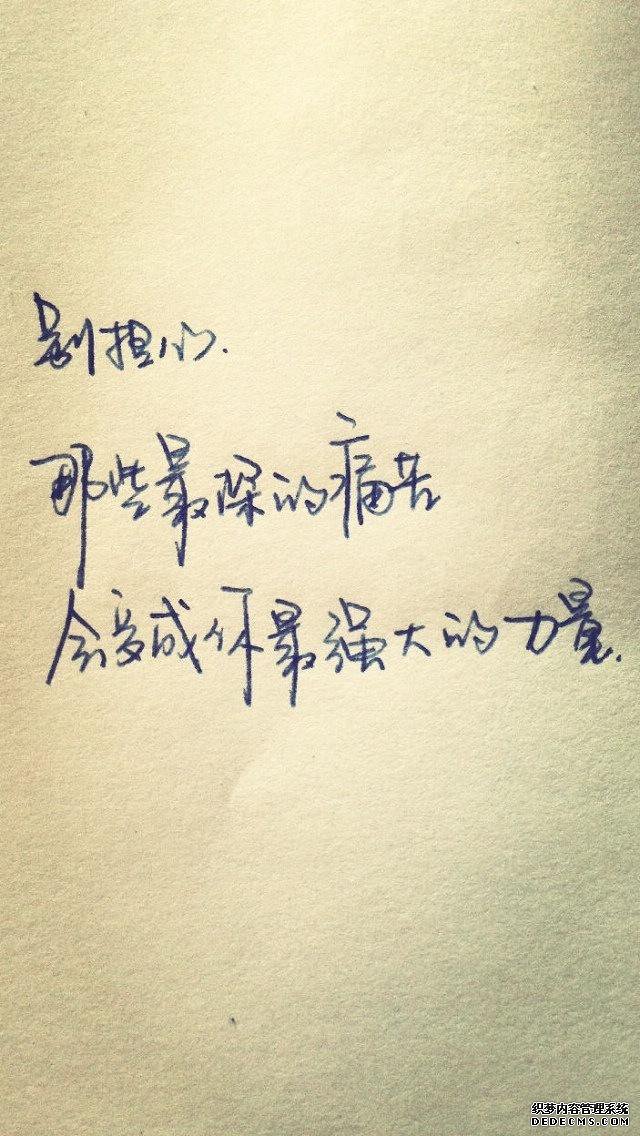 别担心.
那些最深的痛苦
会变成你最强大的力量.
织梦内容管理系统
DEDECMS.COM